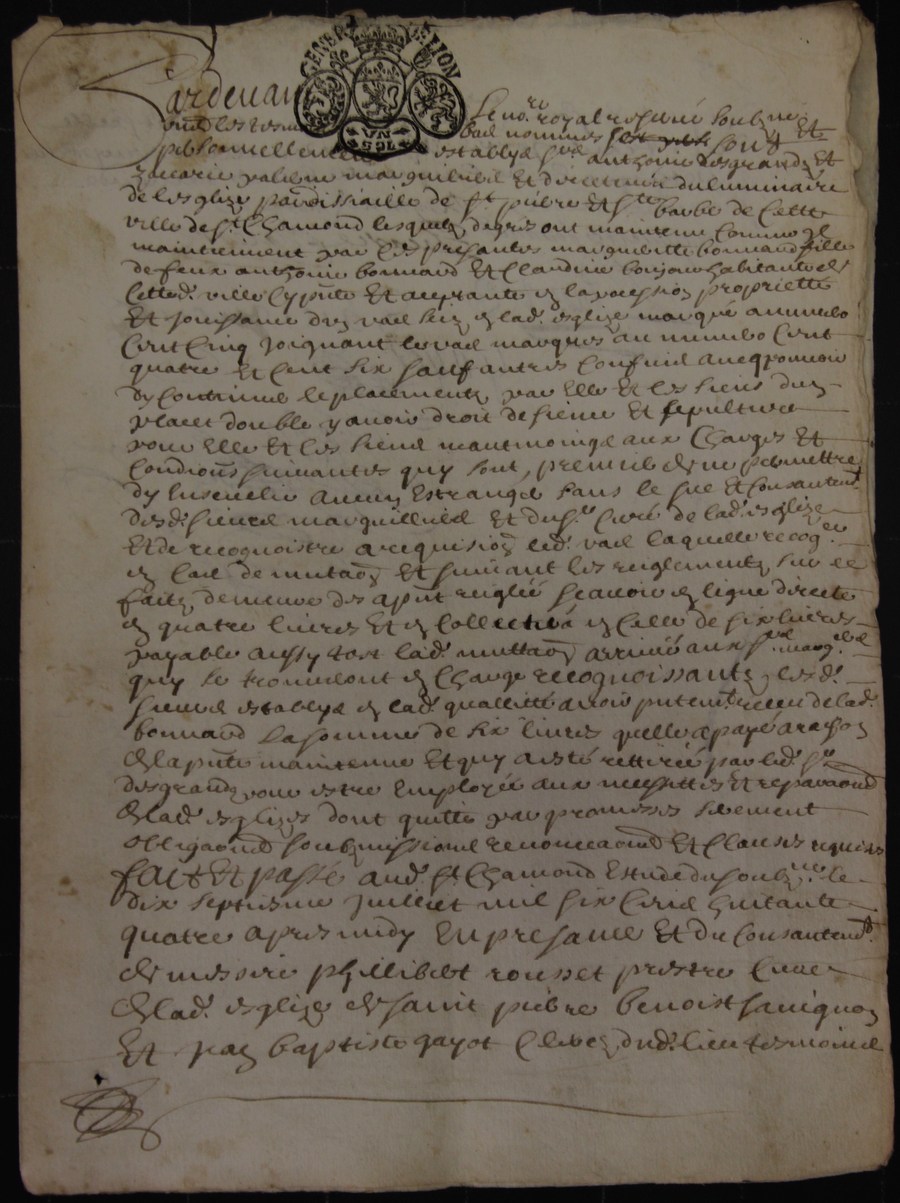 GENERA DE LION
UN SOL
Pardevan le no.re royal resservé soubzne
personnellement establys srs anthoine desgrandz Et
marguillier Et directeurs du luminaire
de lesglize parroissialle de st pierre Et ste barbe de Cette
ville de st Chamond lesquelz degres ont maintenu Comme Ilz
maintiennent par Ces presantes margueritte bonnard fille
de feux anthoine bonnard Et Claudine habitante de
Cetted. ville Cy pnte Et aceptante en la possession proprietté
Et jouissance dun vad sciz en lad. esglize marqué a numero
Cent Cinq joignant les vad marqués au numero Cent
quatre Et Cent six sauf autres Confins avecq pouvoir
dy Continuer le placement par Elle Et les siens dun
placet double y avoir droit de siene Et sepulture
pour Elle Et les siens neantmoings aux Charges Et
Condions suivantes quy sont, premier de ne permettre
dy Ensevelir aucun Estranger sans le sceu Et Consantemt
desd. sieurs marguilliers Et du sr Curé de lad. esglize
Et de recognoistre a requision led. vad laquelle recogn
en Cas de mutaon Et suivant les reiglementz sur ce
faitz demeure des apnt reiglée scavoir en ligne directe
en quatre livres Et en Collective en Celle de six livres
payable aussy tost lad. muttaon arrivée aux srs marg
quy se trouveront en Charge recognoissantz lesd.
sieurs establys en lad. quallitté avoir pntemt receu de lad.
bonnard la somme de six livres quelle a payé a raison
de la pnte maintenue Et quy a esté rettirée par led. sr
desgrandz pour estre Employée aux necessittes Et reparaons
de lad. esglize dont quitte par promesses serement
obligaons soubzmissions renonceaons Et Clauses requises
fait Et passé aud. st Chamond Estude du soubz le
dix septiesme juilliet mil six Cents huitante
quatre apres midy En presance Et du Consantemt
de messire phillibert rousset prestre Curé
de lad. esglize de saint pierre benoist savignon
Et jean baptiste gayot Clercz dud. lieu tesmoins